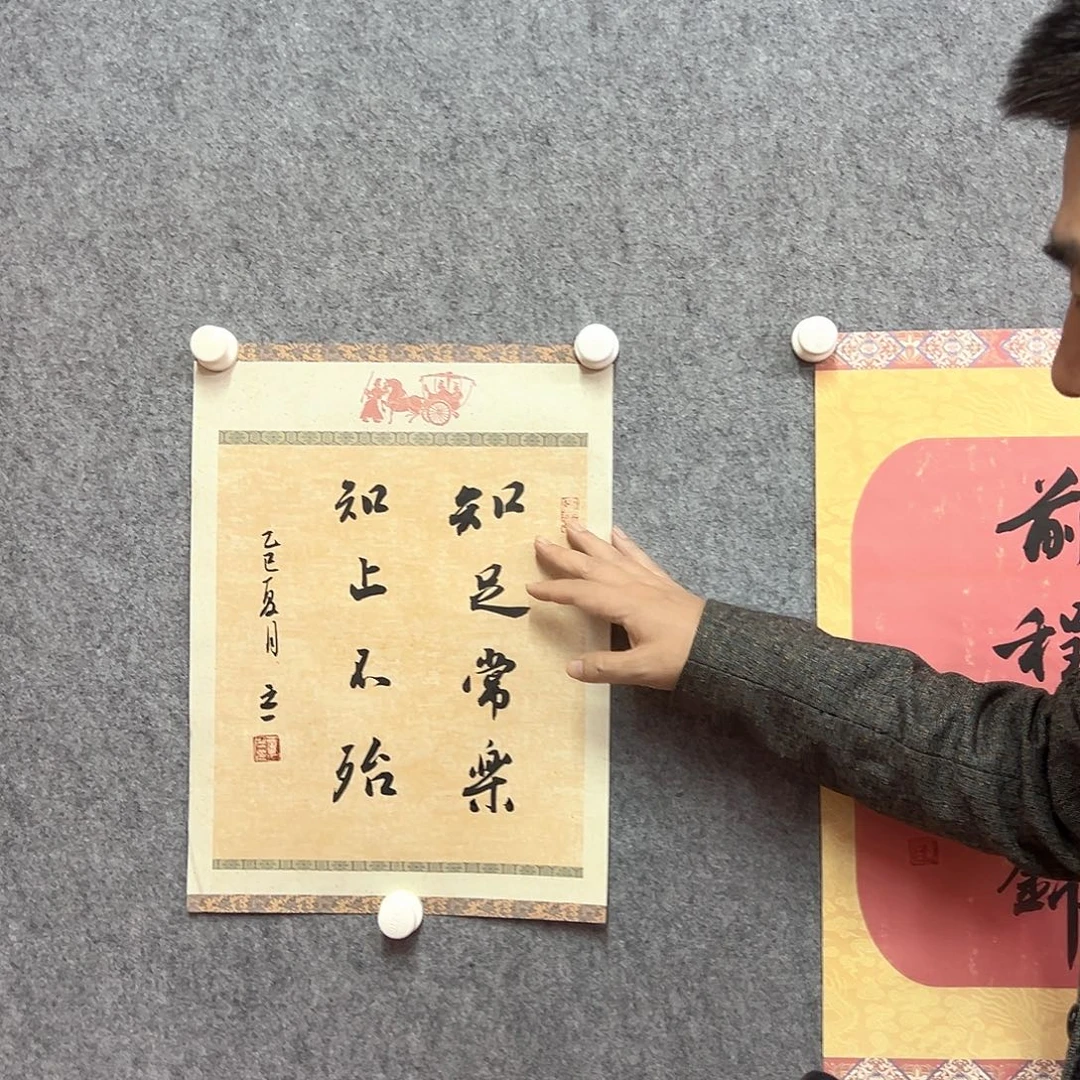 知足常樂
知止不殆
乙巳夏月
前程